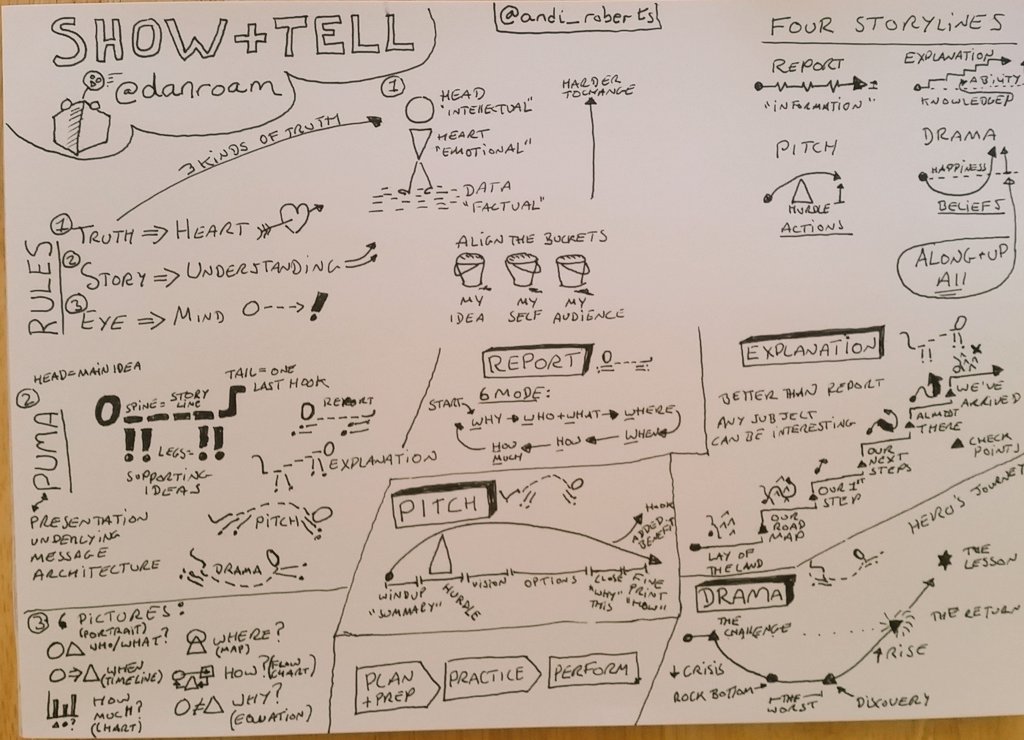 SHOW+TELL
@danroam
@andi_roberts
3 KINDS OF TRUTH
①
HEAD
"INTELLECTUAL"
HEART
"EMOTIONAL"
DATA
"FACTUAL"
HARDER
TO CHANGE
RULES
① TRUTH ⇒ HEART
② STORY ⇒ UNDERSTANDING
③ EYE ⇒ MIND
ALIGN THE BUCKETS
MY
IDEA
MY
SELF
MY
AUDIENCE
FOUR STORYLINES
REPORT
"INFORMATION"
EXPLANATION
ABILITY
KNOWLEDGE
PITCH
HURDLE
ACTIONS
DRAMA
HAPPINESS
BELIEFS
ALONG+UP
All
②
PUMA
HEAD=MAIN IDEA
SPINE= STORY
LINE
TAIL=ONE
LAST HOOK
LEGS=
SUPPORTING
IDEAS
REPORT
EXPLANATION
PITCH
DRAMA
PRESENTATION
UNDERLYING
MESSAGE
ARCHITECTURE
REPORT
6 MODE:
START
WHY
WHO+WHAT
WHERE
WHEN
HOW
HOW
MUCH
EXPLANATION
BETTER THAN REPORT
ANY SUBJECT
CAN BE INTERESTING
LAY OF
THE LAND
OUR
ROAD
MAP
OUR 1ST
STEP
OUR
NEXT
STEPS
ALMOST
THERE
WE'VE
ARRIVED
CHECK
POINTS
PITCH
WINDUP
"SUMMARY"
HURDLE
VISION
OPTIONS
CLOSE
"WHY"
THIS
FINE
PRINT
"HOW"
HOOK
ADDED
BENEFIT
HERO'S JOURNEY
DRAMA
THE
CHALLENGE
↓CRISIS
ROCK BOTTOM
THE
WORST
DISCOVERY
↑RISE
THE RETURN
THE
LESSON
③ 6 PICTURES:
(PORTRAIT)
WHO/WHAT?
WHERE?
(MAP)
WHEN
(TIMELINE)
HOW? (FLOW
CHART)
HOW
MUCH?
(CHART)
WHY?
(EQUATION)
PLAN
+PREP
PRACTICE
PERFORM